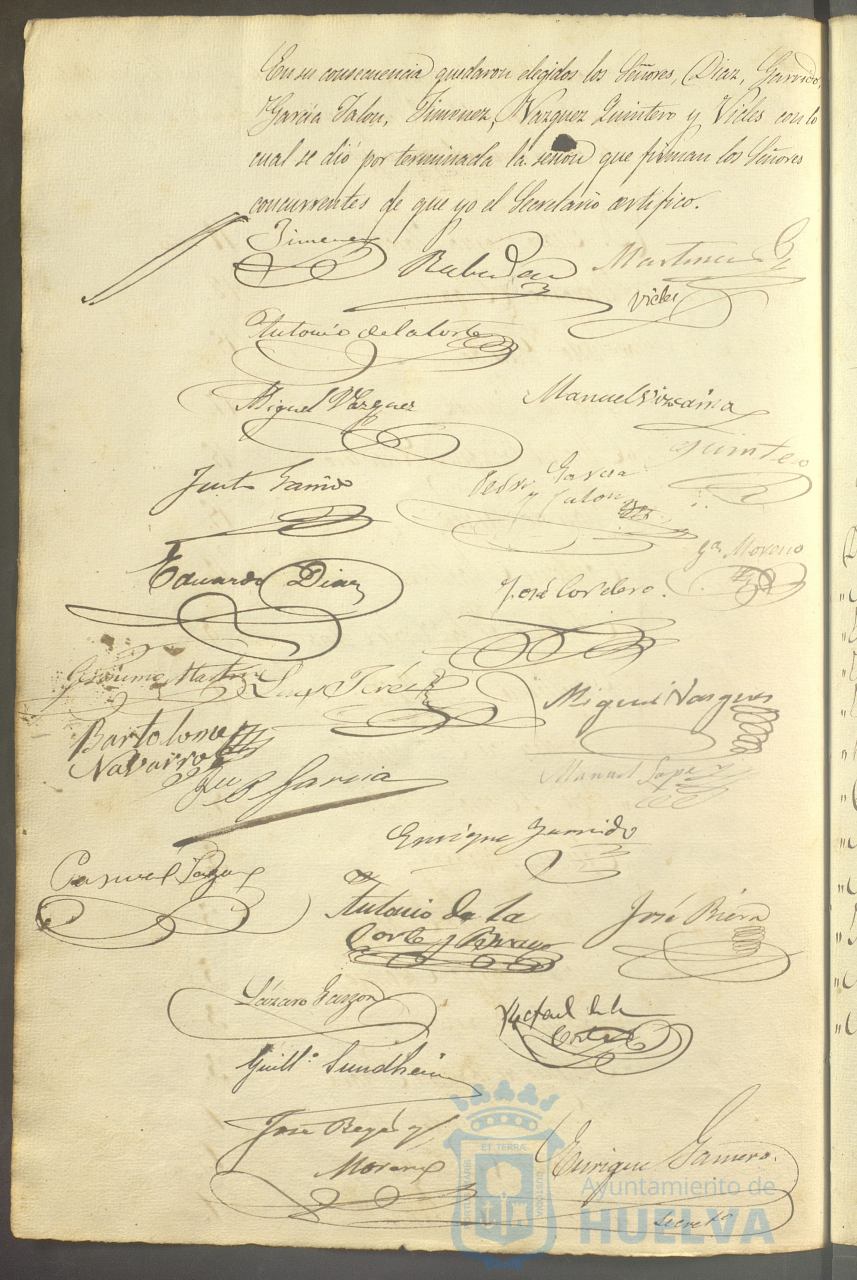 En su consecuencia quedaron elegidos los Señores, Diaz, Garrido,
Garcia Jalon, Jimenez, Vazquez Quintero y Vides con lo
cual se dió por terminada la sesion que firman los Señores
concurrentes de que yo el Secretario certifico.
Jimenez
Martinez
Vides
Antonio de la Corte
Miguel Vazquez
Manuel Vizcaino
Justo Garrido
Pedro Garcia
y Jalon
Quintero
Eduardo Diaz
José Cordero.
Moreno
Miguel Vazquez
Bartolome
Navarro
Garcia
Manuel Lopez
Enrique Garrido
Antonio de la
Corte y Bravo
José Riera
Lázaro Garzon
Rafael de la
Corte
Guillo. Sundheim
Jose Reyes y
Moreno
Enrique Gamero.
Secreto
ET TERRÆ
Ayuntamiento de
HUELVA